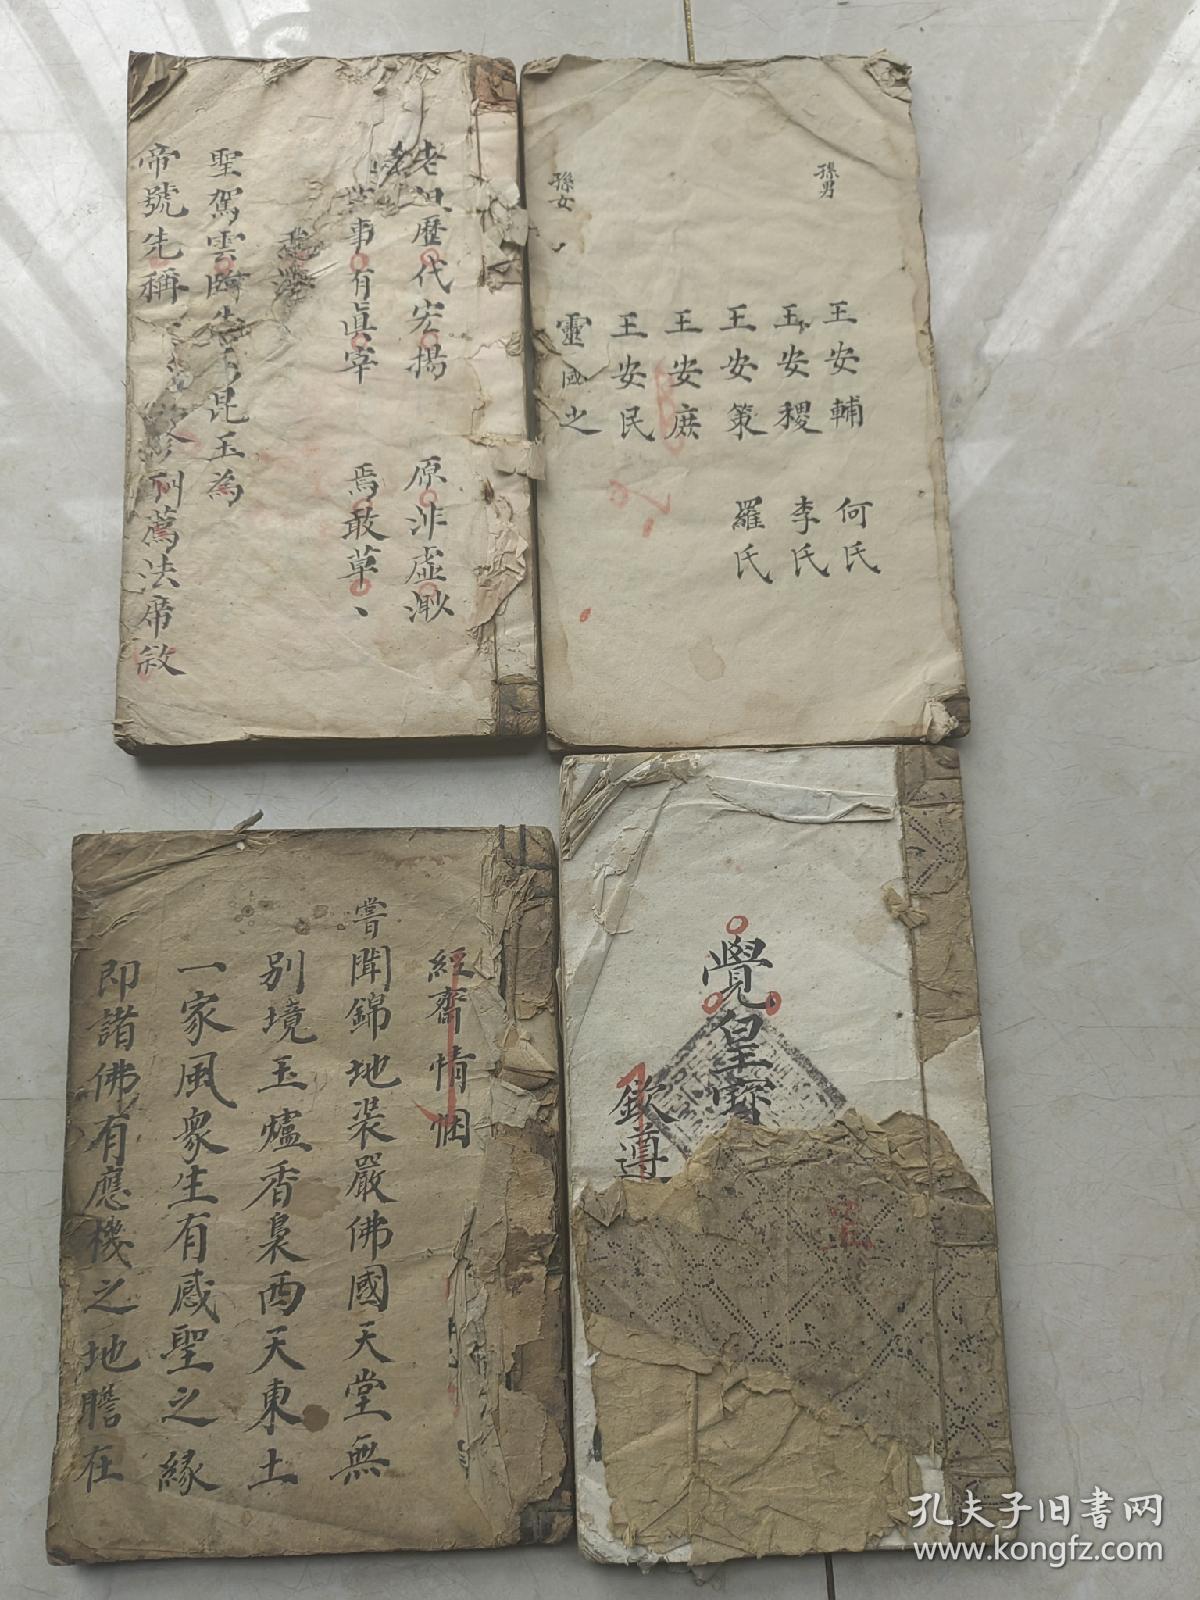 老祖歷代宏揚 原非虛渺
事有眞宰 焉敢草、
聖駕雲 昆玉為
帝號先稱 列薦法席敘
孫男
王安輔 何氏
王安稷 李氏
王安策 羅氏
王安庶
王安民
孫女
靈 之
經齋情悃
嘗聞錦地裝嚴佛國天堂無
別境玉爐香裊西天東土
一家風衆生有感聖之緣
即諸佛有應機之地瞻在
覺皇寶
欽遵
孔夫子旧书网
www.kongfz.com